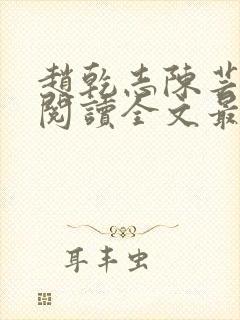 趙乾志陳芸
閱讀全文最
耳丰虫